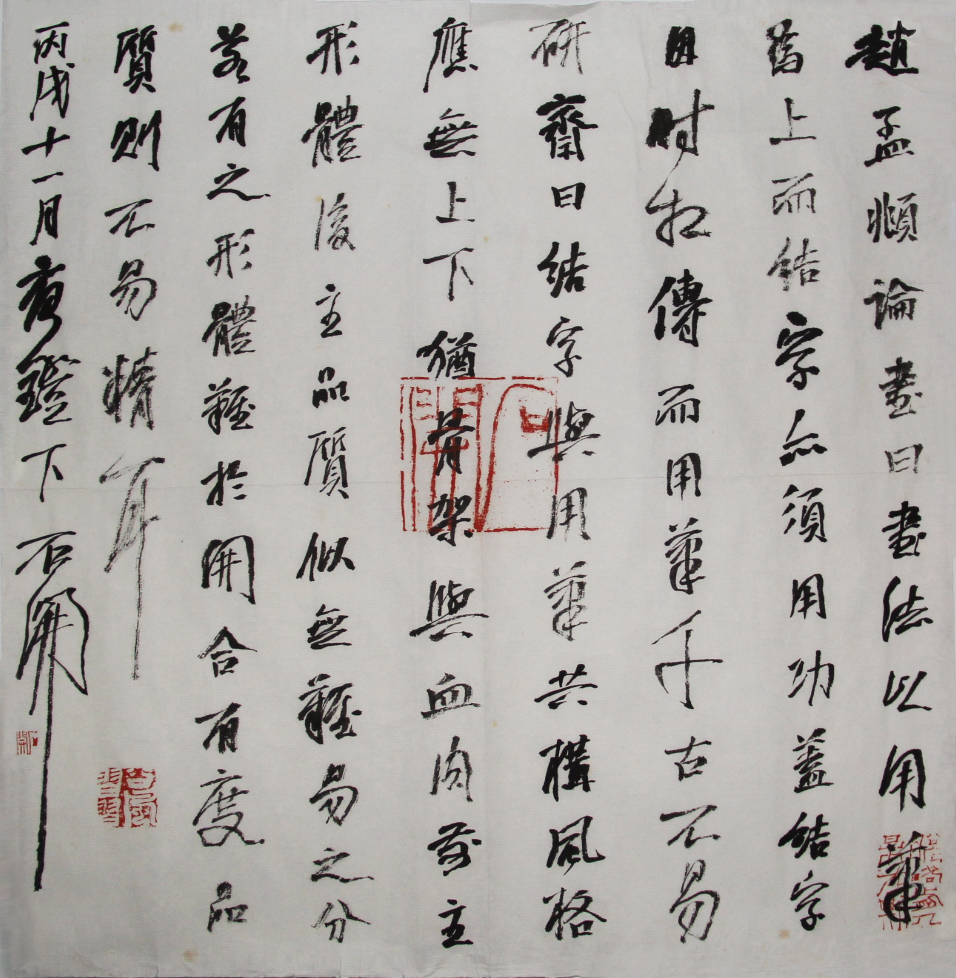 趙孟頫論書曰書法以用筆
為上而結字亦須用功蓋結字
因時相傳而用筆千古不易
研齋曰結字與用筆共構風格
應無上下猶骨架與血肉前主
形體後主品質似無難易之分
若有之形體難於開合有度品
質則不易精耳
丙戌十一月夜鐙下石開
石開